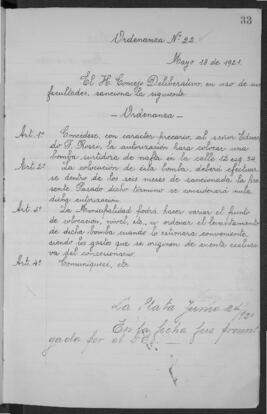 33
Ordenanza Nº 22
Mayo 18 de 1921.
El H. Concejo Deliberativo, en uso de sus
facultades, sanciona la siguiente
— Ordenanza —
Art. 1º Concédese, con carácter precario, al señor Eduar-
do F. Rossi, la autorización para colocar una
bomba surtidora de nafta en la calle 12 esq. 54.
Art. 2º La colocación de esta bomba, deberá efectuar
se dentro de los seis meses de sancionada la pre
sente. Pasado dicho término se considerará nula
dicha autorización.
Art. 3º La Municipalidad podrá hacer variar el punto
de colocación, nivel, etc., y ordenar el levantamiento
de dicha bomba cuando lo estimara conveniente,
siendo los gastos que se originen de cuenta exclusi
va del concesionario.
Art. 4º Comuníquese, etc.
La Plata Junio
En la fecha fué promul
gada por el